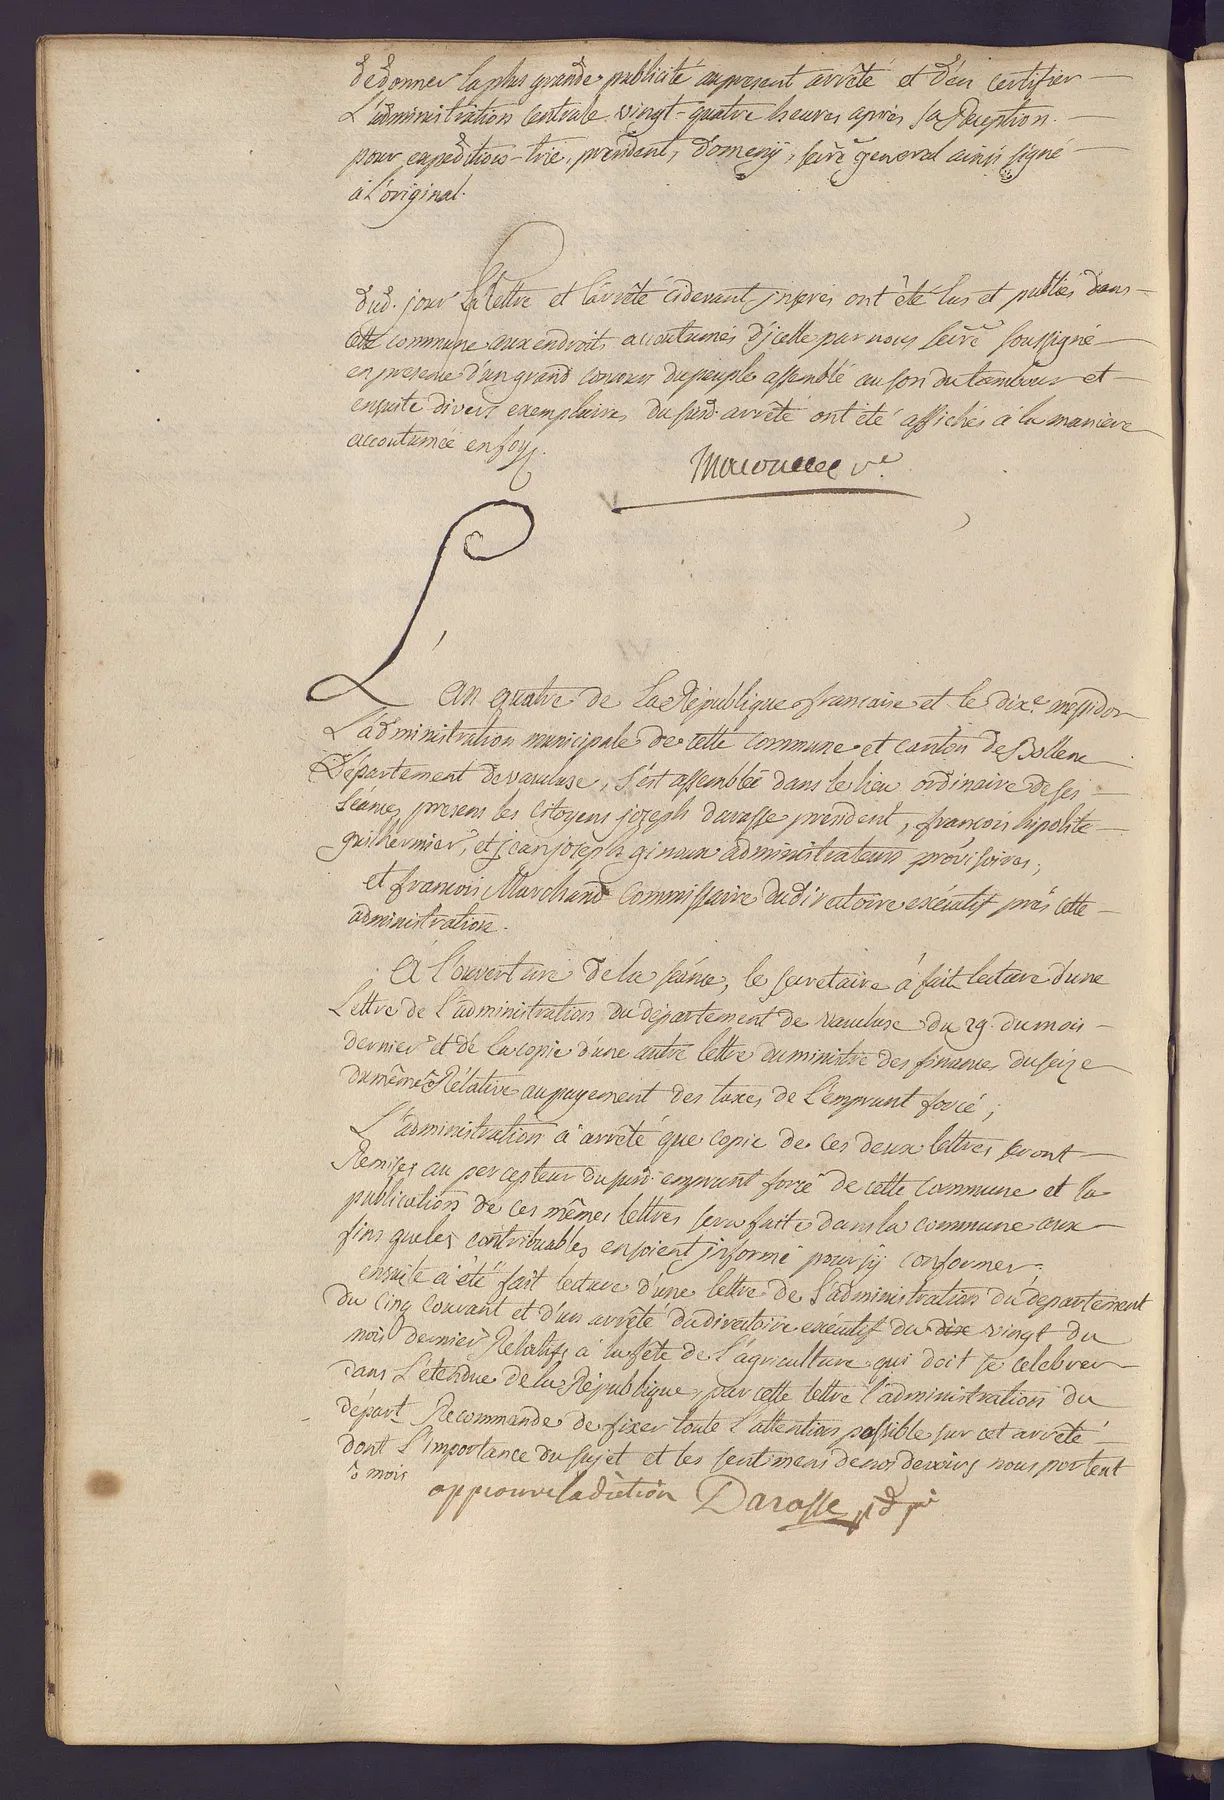 dedonner laplus grande publicité aupresent arrêté et d'en certifier
L'administration Centrale vingt-quatre heures après sa Reception.
pour expedition - président, secre general ainsi signé
à L'original.
dud. jour La Lettre et l'arrêté cidevant jnserés ont été lus et publiés dans
cette commune aux endroits accoutumés d'jcelle par nous secre soussigné
en presence d'un grand concours du peuple assemblé au son du tambour et
ensuite divers exemplaires du susd. arrêté ont été affichés à la maniere
accoutumée en foy.
L'an quatre de La République francaise et le dixe messidor
L'administration municipale de cette commune et canton de Bollene
Département devaucluse, s'est assemblée dans le lieu ordinaire de ses
séances, presens les Citoyens jozeph darasse president, françois hipolite
guilhermier, et jean joseph ginoux administrateurs provisoires,
et francois Marchand Commissaire du directoire exécutif près cette
administration.
A l'ouverture de la séance, le secretaire à fait lecture d'une
Lettre de l'administration du département de vaucluse du 29. du mois
dernier et de la copie d'une autre lettre du ministre des finances du seize
du même Rélative au payement des taxes de L'emprunt forcé;
L'administration à arrêté que copie de ces deux lettres seront
Remises au percepteur du susd. emprunt forcé de cette commune et la
publication de ces mêmes lettres sera faite dans la commune aux
fins que les contribuables en soient jnformé pour sÿ conformer.
ensuite à été fait lecture d'une lettre de L'administration du département
du cinq courant et d'un arrêté du directoire exécutif du dix vingt du
mois dernier Relatifs à la fête de l'agriculture qui doit se celebrer
dans L'étendue de la République, par cette lettre l'administration du
départ. Recommande de fixer toute l'attention possible sur cet arrêté
dont L'importance du sujet et les sentimens de nos devoirs nous portent
mois
approuvé ladiction Darasse